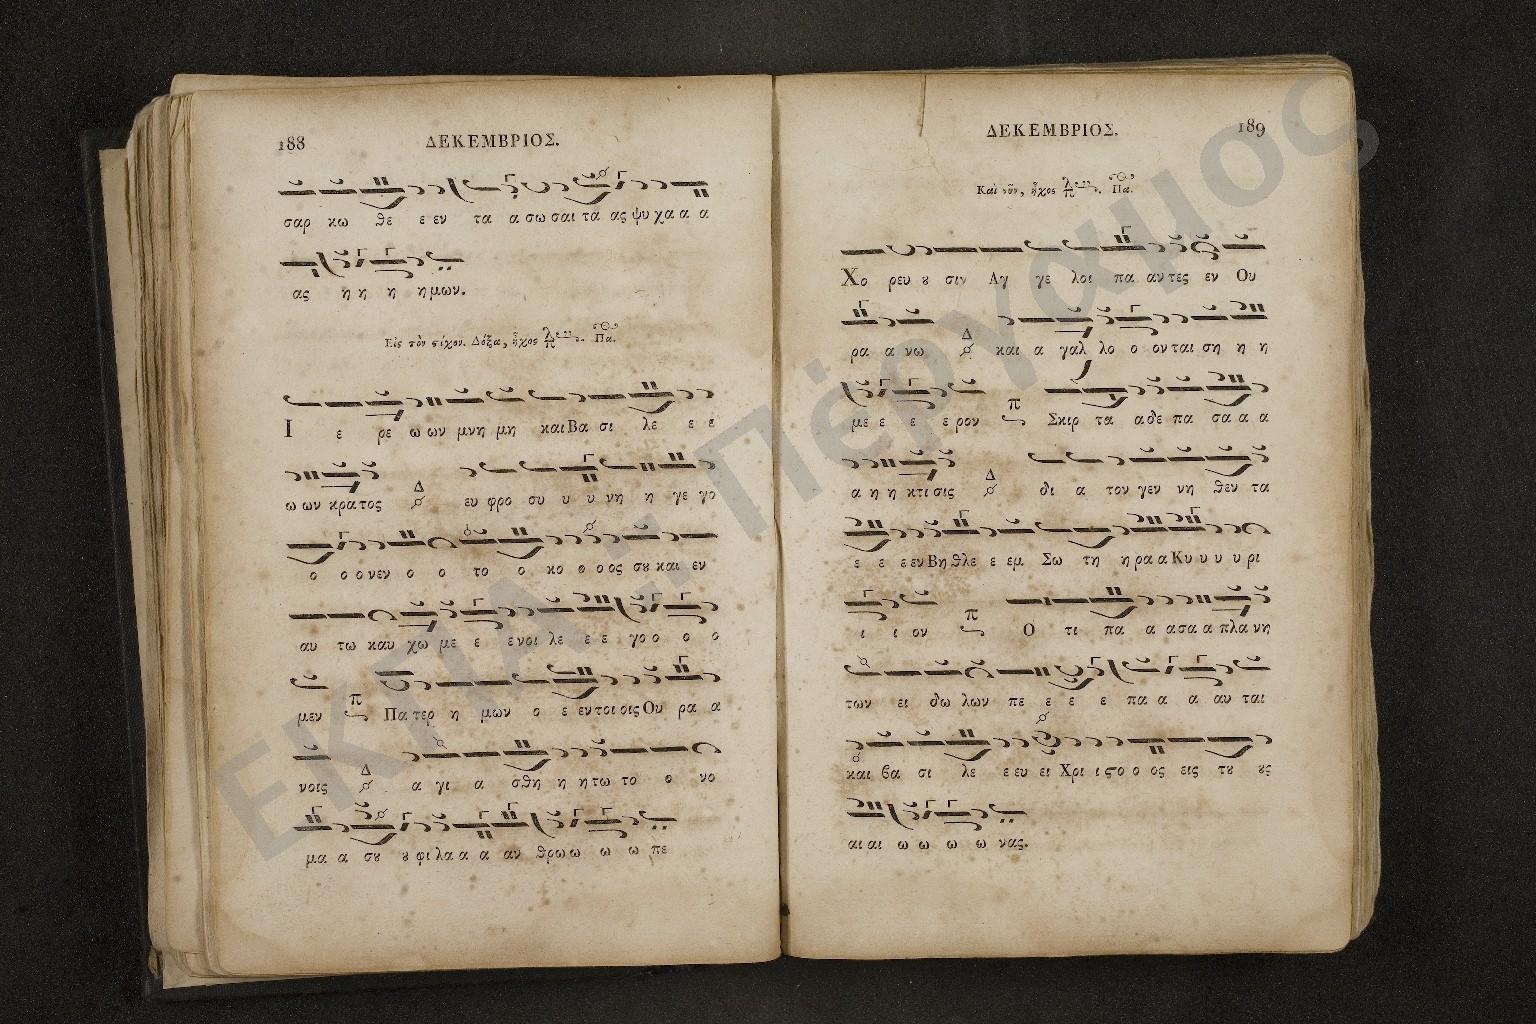 188
ΔΕΚΕΜΒΡΙΟΣ.
σαρ κω θε ε εν τα α σω σαι τα ας ψυ χα α α
ας η η η η μων.
Εἰς τὸν στίχον. Δόξα, ἦχος λ π Πα.
Ι ε ρε ω ων μνη μη και Βα σι λε ε ε
ω ων κρα τος Δ ευ φρο συ υ υ νη η γε γο
ο ο ο νεν ο ο το ο κο φ ο ος σȣ και εν
αυ τω καυ χω με ε ε νοι λε ε ε γο ο ο ο
μεν π Πα τερ η μων ο ε εν τοι οις Ου ρα α
νοις Δ α γι α σθη η η τω το ο νο
μα α σȣ ȣ φι λα α α αν θρω ω ω ω πε
189
ΔΕΚΕΜΒΡΙΟΣ.
Καὶ νῦν, ἦχος λ π Πα.
Χο ρευ ȣ σιν Αγ γε λοι πα αν τες εν Ου
ρα α νω Δ και α γαλ λο ο ον ται ση η η
με ε ε ε ρον π Σκιρ τα α δε πα σα α α
α η η κτι σις Δ δι α τον γεν νη θεν τα
ε ε ε εν Βη θλε ε εμ Σω τη η ρα α Κυ υ υ υ ρι
ι ι ον π Ο τι πα α α σα α πλα νη
των ει δω λων πε ε ε ε πα α α αυ ται
και βα σι λε ε ευ ει Χρι ι ϛο ο ος εις τȣ ȣς
αι αι ω ω ω ω νας.
ΕΚΠΑ: Πέργαμος